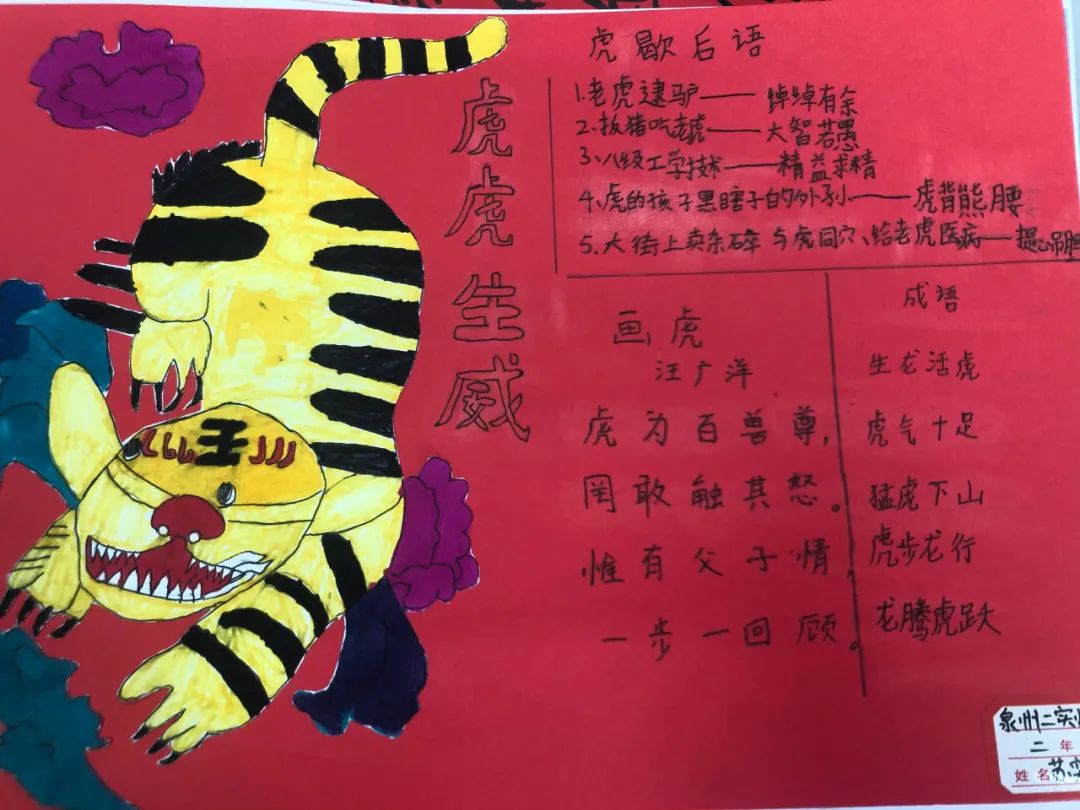 王
虎虎生威
虎歇后语
1.老虎逮驴——绰绰有余
2.扮猪吃老虎——大智若愚
3.八级工学技术——精益求精
4.虎的孩子黑瞎子的外孙——虎背熊腰
5.大街上卖杂碎与虎同穴、给老虎医病——提心吊胆
画虎
汪广洋
虎为百兽尊，
罔敢触其怒。
惟有父子情，
一步一回顾。
成语
生龙活虎
虎气十足
猛虎下山
虎步龙行
龙腾虎跃
泉州二实
二年
姓名苏